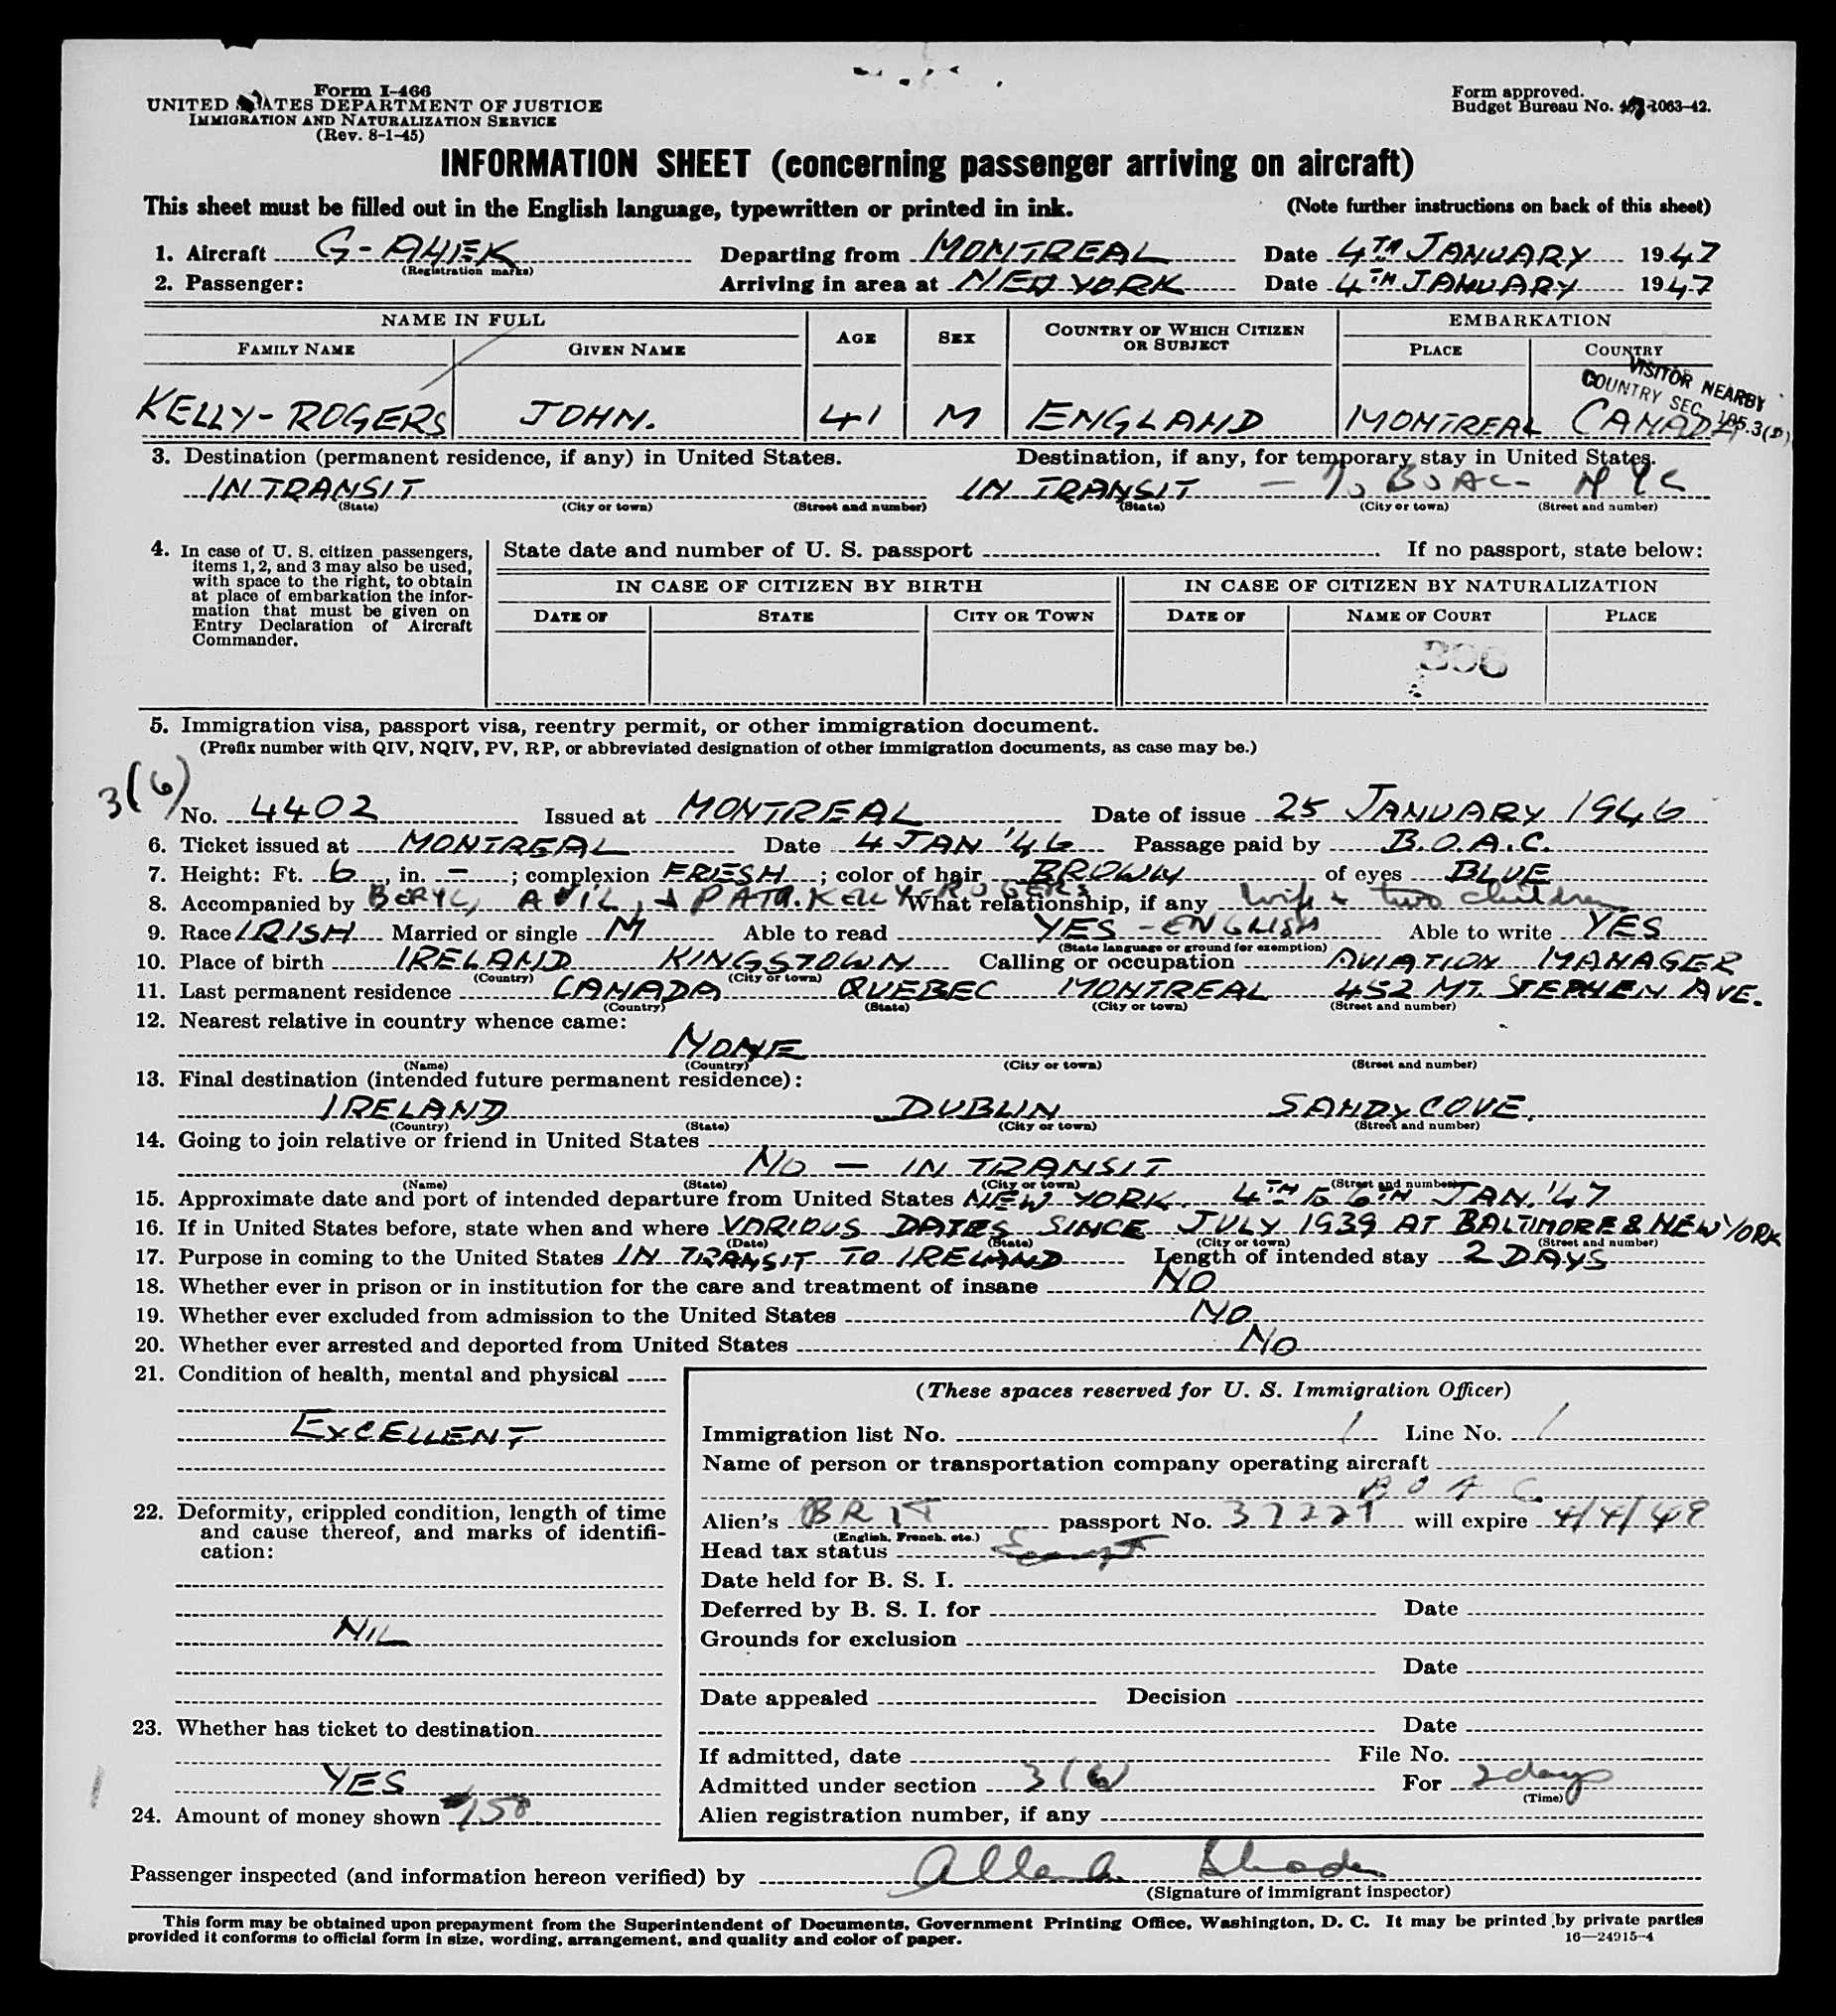 Form I-466
UNITED STATES DEPARTMENT OF JUSTICE
IMMIGRATION AND NATURALIZATION SERVICE
(Rev. 8-1-45)
Form approved.
Budget Bureau No. 1063-42.
INFORMATION SHEET (concerning passenger arriving on aircraft)
This sheet must be filled out in the English language, typewritten or printed in ink. (Note further instructions on back of this sheet)
1. Aircraft G-AHEK Departing from MONTREAL Date 4TH JANUARY 1947
(Registration marks)
2. Passenger: Arriving in area at NEW YORK Date 4TH JANUARY 1947
NAME IN FULL AGE SEX COUNTRY OF WHICH CITIZEN OR SUBJECT EMBARKATION
FAMILY NAME GIVEN NAME PLACE COUNTRY
VISITOR NEARBY
COUNTRY SEC. 195.3(D)
KELLY-ROGERS JOHN. 41 M ENGLAND MONTREAL CANADA
3. Destination (permanent residence, if any) in United States. Destination, if any, for temporary stay in United States.
IN TRANSIT IN TRANSIT - % BOAC - NYC
(State) (City or town) (Street and number) (State) (City or town) (Street and number)
4. In case of U. S. citizen passengers, items 1, 2, and 3 may also be used, with space to the right, to obtain at place of embarkation the information that must be given on Entry Declaration of Aircraft Commander.
State date and number of U. S. passport If no passport, state below:
IN CASE OF CITIZEN BY BIRTH IN CASE OF CITIZEN BY NATURALIZATION
DATE OF STATE CITY OR TOWN DATE OF NAME OF COURT PLACE
306
5. Immigration visa, passport visa, reentry permit, or other immigration document.
(Prefix number with QIV, NQIV, PV, RP, or abbreviated designation of other immigration documents, as case may be.)
3(6)
No. 4402 Issued at MONTREAL Date of issue 25 JANUARY 1946
6. Ticket issued at MONTREAL Date 4 JAN '46 Passage paid by B.O.A.C.
7. Height: Ft. 6, in. -; complexion FRESH; color of hair BROWN of eyes BLUE
8. Accompanied by BERYL, AVIL, & PATR. KELLY-ROGERS What relationship, if any wife + two children
9. Race IRISH Married or single M Able to read YES - ENGLISH Able to write YES
(State language or ground for exemption)
10. Place of birth IRELAND KINGSTOWN Calling or occupation AVIATION MANAGER
(Country) (City or town)
11. Last permanent residence CANADA QUEBEC MONTREAL 452 MT. STEPHEN AVE.
(Country) (State) (City or town) (Street and number)
12. Nearest relative in country whence came:
NONE
(Name) (Country) (City or town) (Street and number)
13. Final destination (intended future permanent residence):
IRELAND DUBLIN SANDYCOVE.
(Country) (State) (City or town) (Street and number)
14. Going to join relative or friend in United States
NO - IN TRANSIT
(Name) (State) (City or town) (Street and number)
15. Approximate date and port of intended departure from United States NEW YORK. 4TH to 6TH JAN. '47
16. If in United States before, state when and where VARIOUS DATES SINCE JULY 1939 AT BALTIMORE & NEW YORK
(Date) (State) (City or town) (Street and number)
17. Purpose in coming to the United States IN TRANSIT TO IRELAND Length of intended stay 2 DAYS
18. Whether ever in prison or in institution for the care and treatment of insane NO
19. Whether ever excluded from admission to the United States NO.
20. Whether ever arrested and deported from United States NO
21. Condition of health, mental and physical
EXCELLENT
22. Deformity, crippled condition, length of time and cause thereof, and marks of identification:
NIL
23. Whether has ticket to destination
YES
24. Amount of money shown $150
(These spaces reserved for U. S. Immigration Officer)
Immigration list No. 1 Line No. 1
Name of person or transportation company operating aircraft
B O A C.
Alien's BRIT passport No. 37227 will expire 4/4/49
(English, French, etc.)
Head tax status Exempt
Date held for B. S. I.
Deferred by B. S. I. for Date
Grounds for exclusion
Date
Date appealed Decision
Date
If admitted, date File No.
Admitted under section 3(6) For 2 days
(Time)
Alien registration number, if any
Passenger inspected (and information hereon verified) by Allen
(Signature of immigrant inspector)
This form may be obtained upon prepayment from the Superintendent of Documents, Government Printing Office, Washington, D. C. It may be printed by private parties
provided it conforms to official form in size, wording, arrangement, and quality and color of paper.
16-24915-4